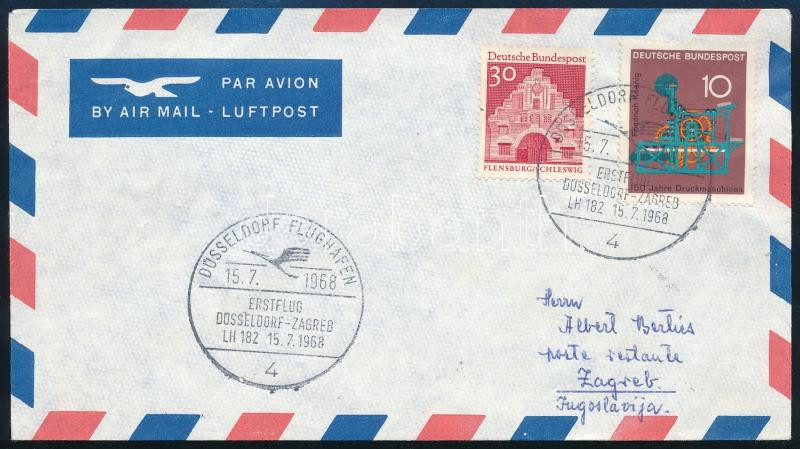 PAR AVION
BY AIR MAIL - LUFTPOST
30
Deutsche Bundespost
FLENSBURG/SCHLESWIG
DEUTSCHE BUNDESPOST
10
Friedrich Koenig
150 Jahre Druckmaschinen
DÜSSELDORF FLUGHAFEN
15.7.
ERSTFLUG
DÜSSELDORF-ZAGREB
LH 182 15.7.1968
4
DÜSSELDORF FLUGHAFEN
15.7. 1968
ERSTFLUG
DÜSSELDORF-ZAGREB
LH 182 15.7.1968
4
Herrn
Albert Berties
poste restante
Zagreb
Jugoslavija.